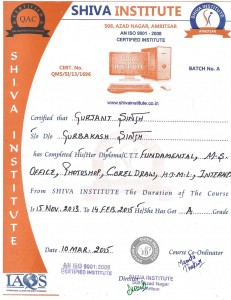 SHIVA INSTITUTE
508, AZAD NAGAR, AMRITSAR
AN ISO 9001 : 2008
CERTIFIED INSTITUTE
QAC
CERT. No.
QMS/SI/13/1698
BATCH No. A
www.shivainstitute.co.in
SHIVA INSTITUTE
Certified that GURJANT SINGH
S/o D/o GURBAKASH SINGH
has Completed His/Her Diploma/C.T.T. FUNDAMENTAL, M.S.
OFFICE, PHOTOSHOP, COREL DRAW, H.T.M.L, INTERNET
From SHIVA INSTITUTE The Duration of The Course
Is 15 NOV. 2013 To 14 FEB 2015 His/She Has Got A Grade
Date 10 MAR. 2015
Course Co-Ordinator
AN ISO 9001:2008
CERTIFIED INSTITUTE
Director
SHIVA INSTITUTE
IAQS